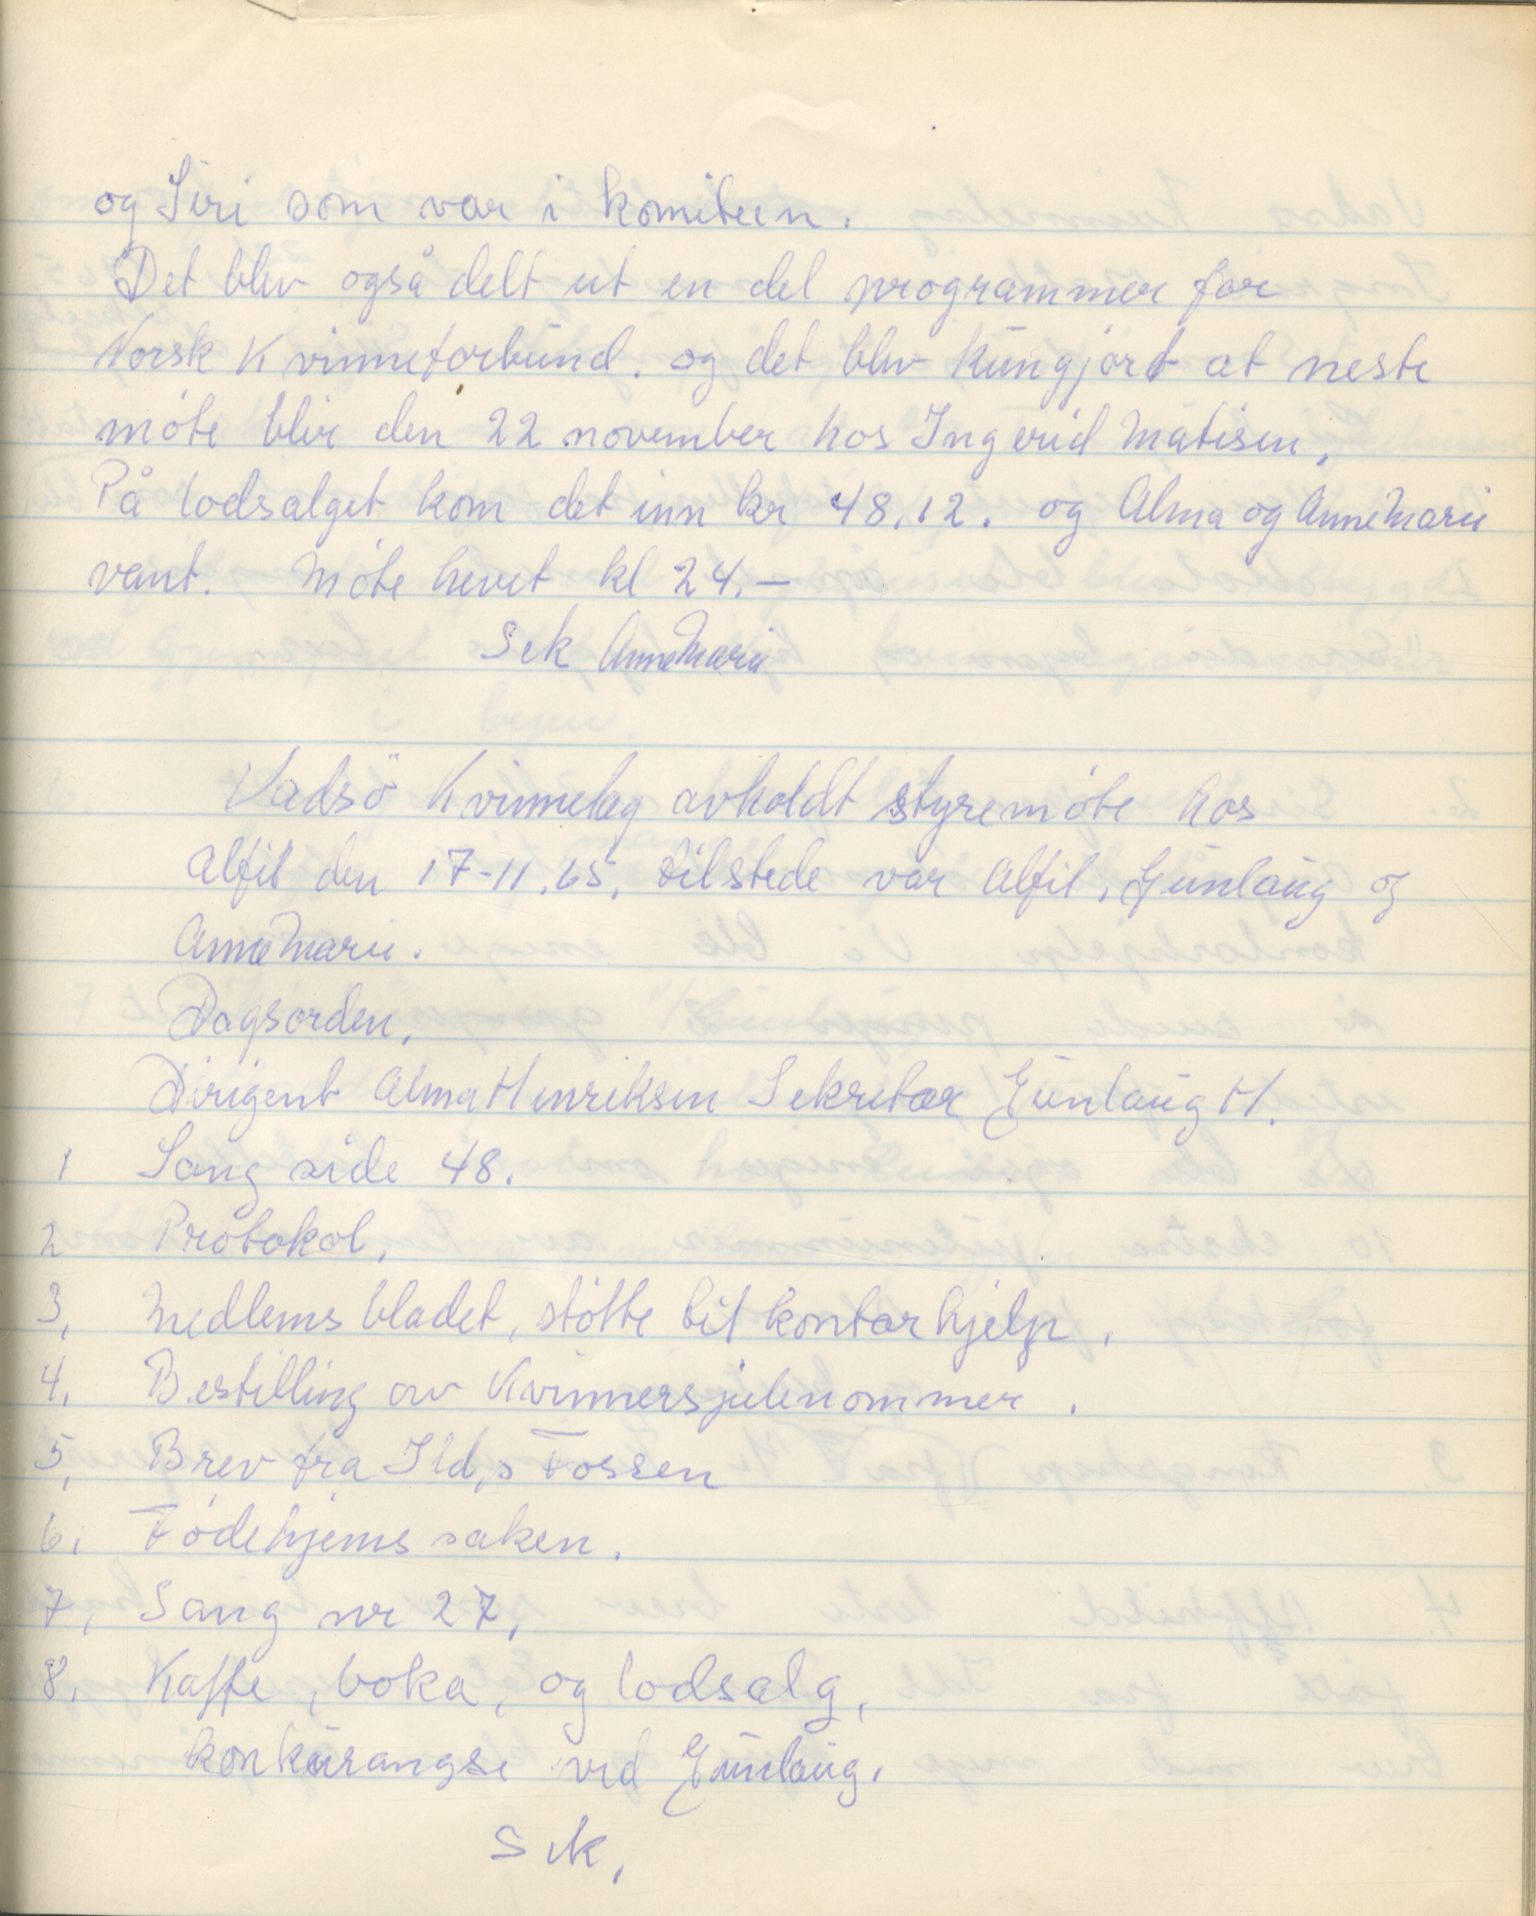 og Siri som var i komiteen.
Det blev også delt ut en del programmer for
Norsk Kvinneforbund. og det blev kungjort at neste
möte blir den 22 november hos Ingerid Matisen,
På lodsalget kom det inn kr 48.12. og Alma og AnneMarie
vant. Möte hevet kl 24.—
Sek AnneMarie
Vadsö Kvinnelag avholdt styremöte hos
Alfil den 17-11.65, tilstede var Alfil, Gunlaug og
AnneMarie.
Dagsorden,
Dirigent Alma Henriksen Sekretær Gunlaug H.
1 Sang side 48.
2 Protokol,
3, Medlems bladet, stötte til kontor hjelp.
4, Bestilling av Kvinnersjulenommer.
5, Brev fra Ild,s Fossen
6, Födehjems saken.
7, Sang nr 27,
8, Kaffe, boka, og lodsalg,
konkurangse ved Gunlaug,
Sek,